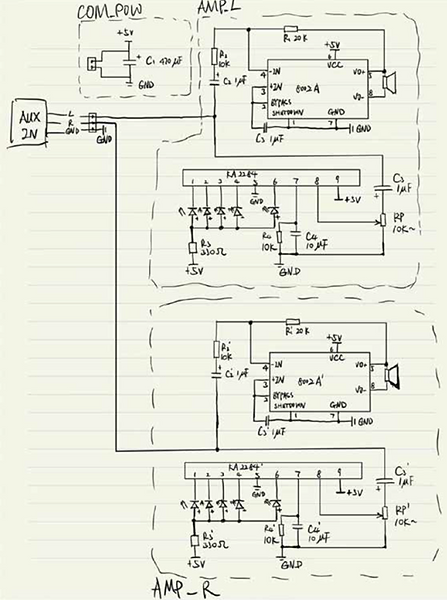 COM_POW
+5V
C1 470μF
GND
AMP_L
R1 20K
R2
10K
C2 1μF
+5V
6
VCC
4 -IN
VO+ 5
3 +IN
8002A
2
BYPASS
VO- 8
SHUTDOWN
GND
1
7
C3 1μF
GND
AUX
IN
L
R
GND
GND
KA2284
1 2 3 4 5 6 7 8 9
GND
+5V
C3
1μF
RP
10K~
R3
330Ω
+5V
R4
10K
C4
10μF
GND
R1' 20K
R2'
10K
C2' 1μF
+5V
6
VCC
4 -IN
VO+ 5
3 +IN
8002A'
2
BYPASS
VO- 8
SHUTDOWN
GND
1
7
C3' 1μF
GND
KA2284'
1 2 3 4 5 6 7 8 9
GND
+5V
C3'
1μF
RP'
10K~
R3'
330Ω
+5V
R4'
10K
C4'
10μF
GND
AMP_R